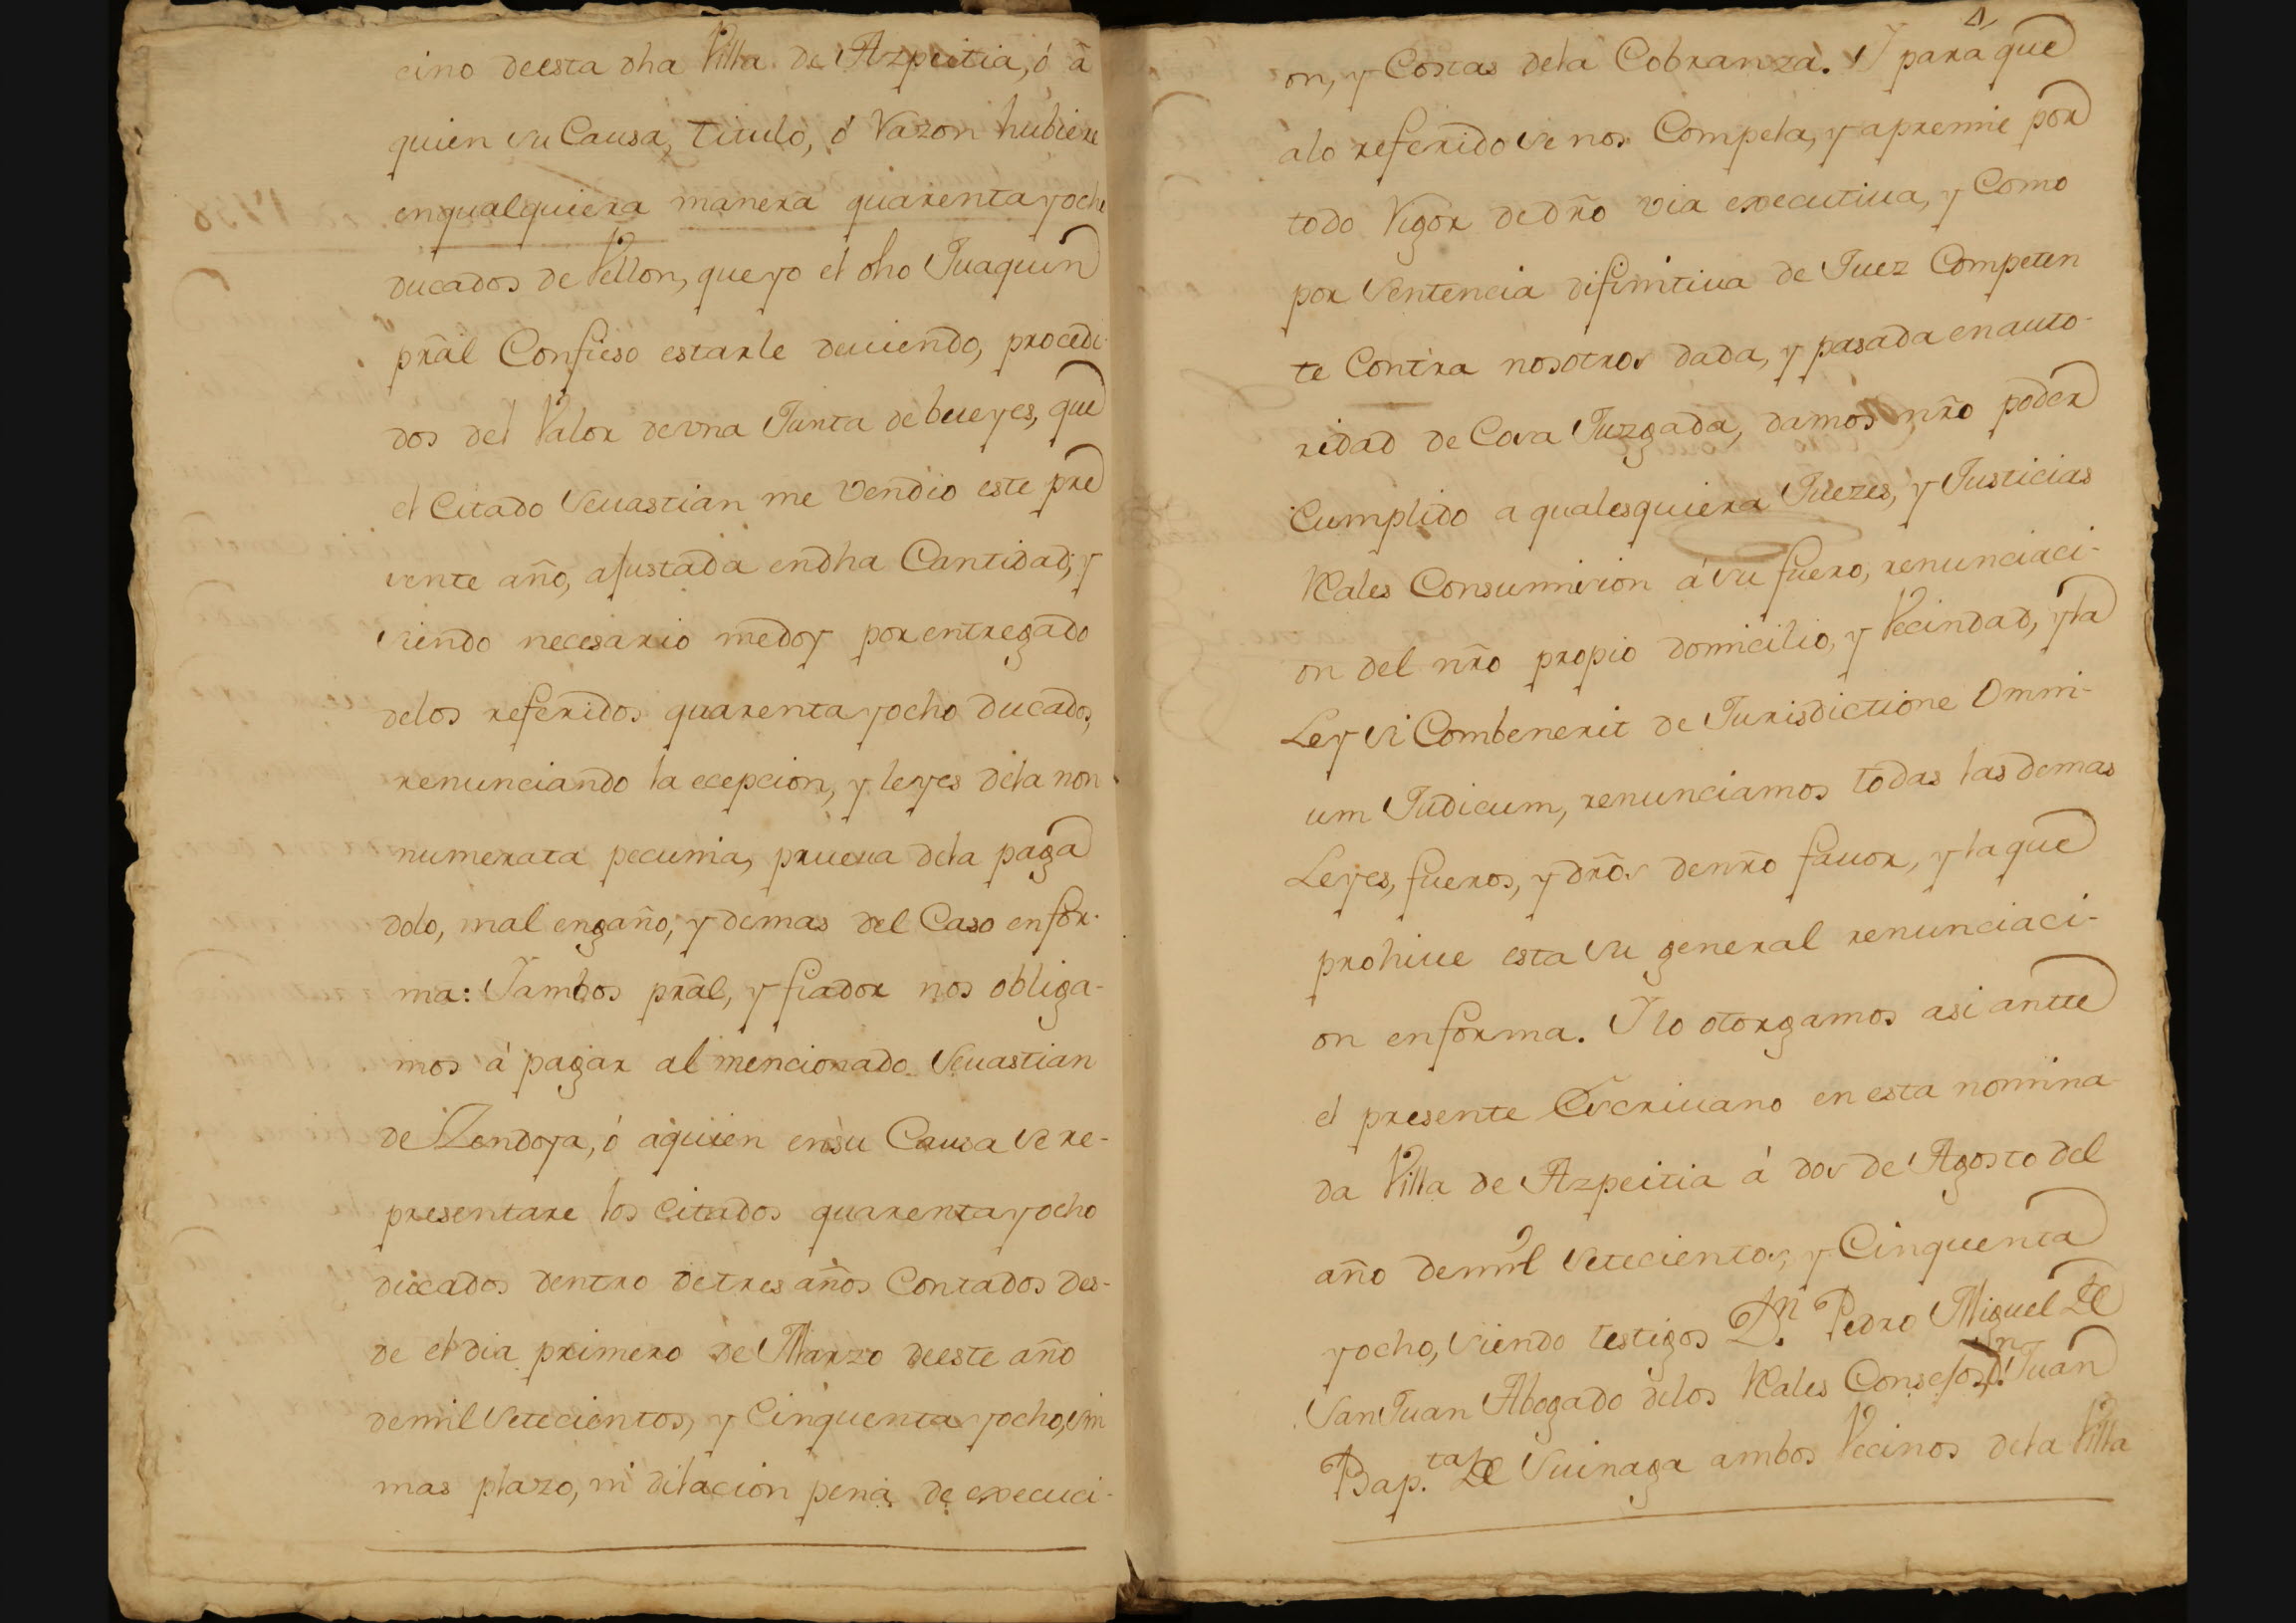 cino deesta dha Villa de Azpeitia, ó â
quien su Causa, titulo, ó Razon hubiere
enqualquiera manera quarenta y ocho
ducados de Vellon, que yo el dho Juaquin
prãl Confieso estarle deuiendo, procedi-
dos del Valor de vna Junta de bueyes, que
el Citado Seuastian me vendio este pre
sente año, ajustada endha Cantidad; y
siendo necesario medoy por entregado
delos referidos quarenta y ocho ducados,
renunciando la ecepcion, y leyes dela non
numerata pecunia, prueua dela paga
dolo, mal engaño, y demas del Caso enfor-
ma: Y ambos prãl, y fiador nos obliga-
mos à pagar al mencionado Seuastian
de Zendoya, ó aquien ensu Causa se re-
presentare los Citados quarenta y ocho
ducados dentro de tres años Contados des-
de el dia primero de Marzo deeste año
demil setecientos, y Cinquenta y ocho, sin
mas plazo, ni dilacion pena de execuci-
on, y Costas dela Cobranza. Y para que
alo referido se nos Compela, y apremie por
todo Vigor de dr̃o via executiua, y Como
por sentencia difinitiua de Juez Competen
te Contra nosotros dada, y pasada enauto-
ridad de Cosa Juzgada, damos nr̃o poder
Cumplido a qualesquiera Juezes, y Justicias
Rales Consumision á su fuero, renunciaci-
on del nr̃o propio domicilio, y Vecindad, y la
Ley si Combenerit de Jurisdictione Omni-
um Judicum, renunciamos todas las demas
Leyes, fueros, y dr̃os denr̃o fauor, y la que
prohiue esta su general renunciaci-
on enforma. Y lo otorgamos asi antte
el presente Escriuano en esta nomina-
da Villa de Azpeitia á dos de Agosto del
año demil setecientos, y Cinquenta
y ocho, siendo testigos D.n Pedro Miguel de
San Juan Abogado delos Rales Consejos, D.n Juan
Bap.ta de Vuinaga ambos Vecinos dela Villa